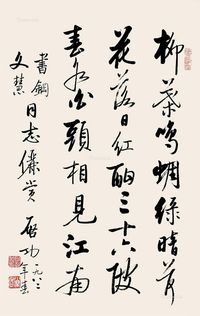 柳葉鳴蜩綠暗荷
花落日紅酣三十六陂
春水白頭相見江南
書鋼
文慧
同志儷賞
啟功
一九八三